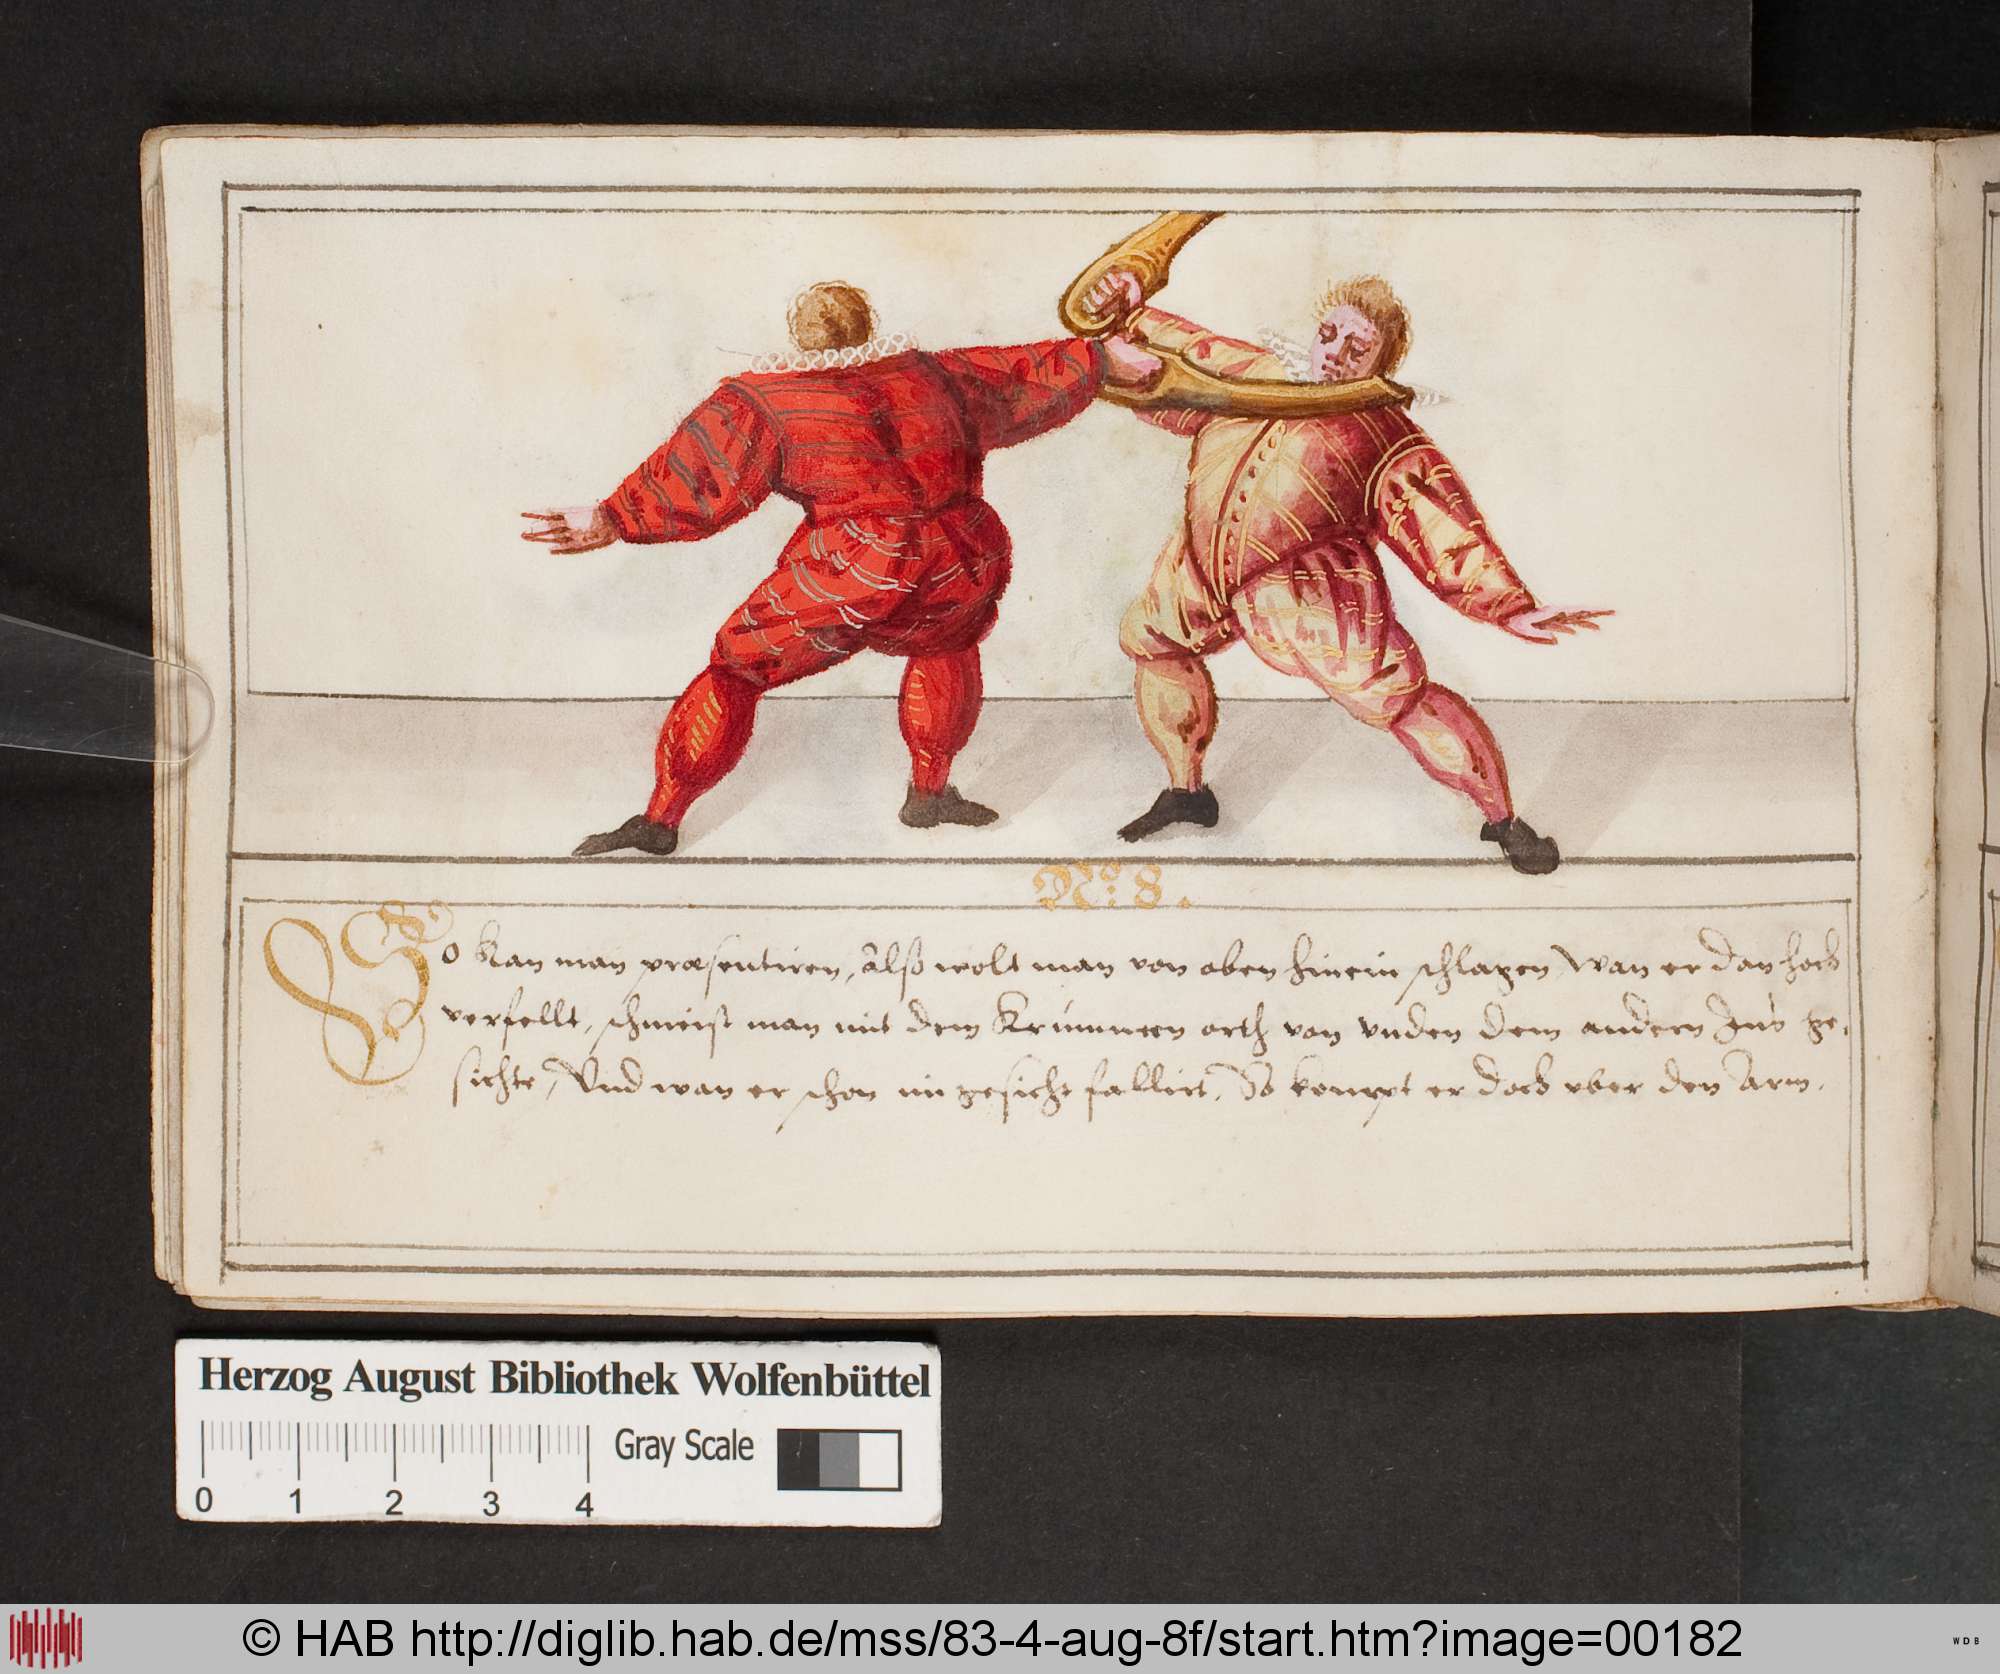 No: 8.
So kan man præsentiren, alß wolt man von oben hinein schlagen, Wan er dan hoch
verfellt, schmeist man mit dem Krummen orth von vnden dem andern Ins ge,
sichte, Vnd wan er schon im gesicht fallirt, So kompt er doch vber den Arm.
Herzog August Bibliothek Wolfenbüttel
Gray Scale
0 1 2 3 4
© HAB http://diglib.hab.de/mss/83-4-aug-8f/start.htm?image=00182
WDB